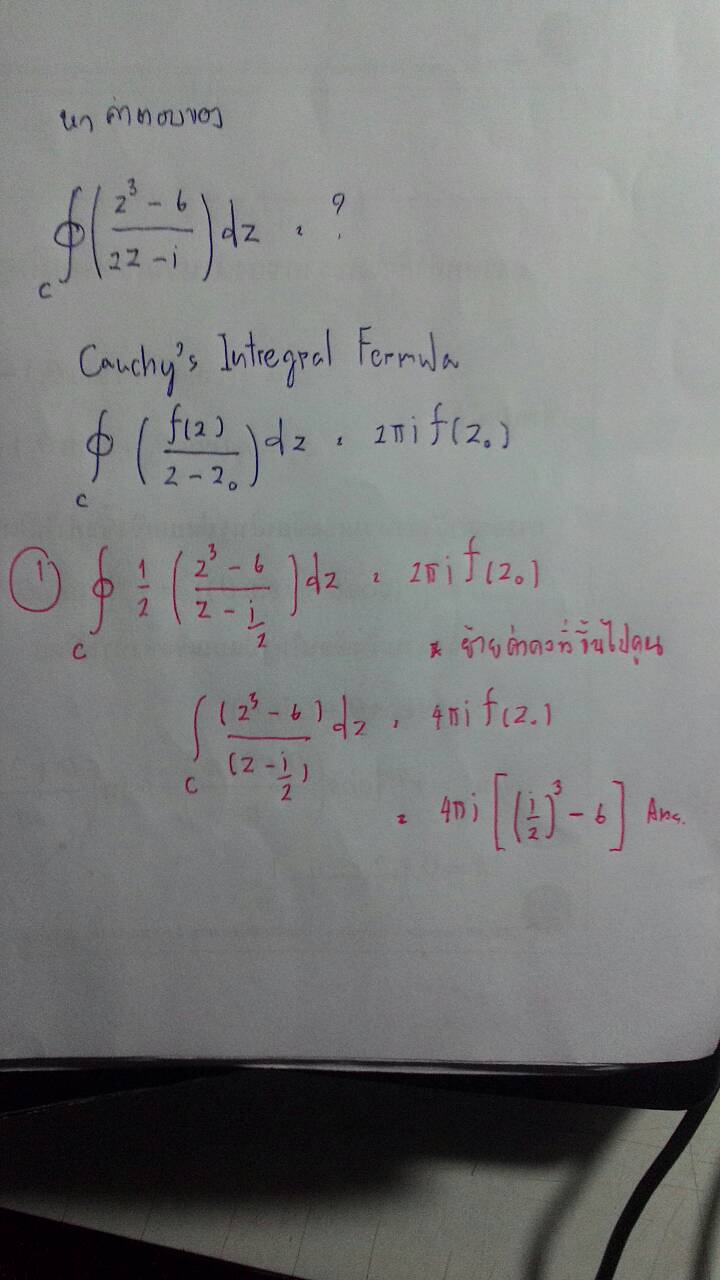 หาคำตอบของ
∮_C ( (z³ - 6) / (2z - i) ) dz = ?
Cauchy's Intregral Formula
∮_C ( f(z) / (z - z₀) ) dz = 2πi f(z₀)
① ∮_C 1/2 ( (z³ - 6) / (z - i/2) ) dz = 2πi f(z₀)
* ย้ายค่าคงที่ขึ้นไปคูณ
∫_C (z³ - 6) / (z - i/2) dz = 4πi f(z₀)
= 4πi [ (i/2)³ - 6 ] Ans.